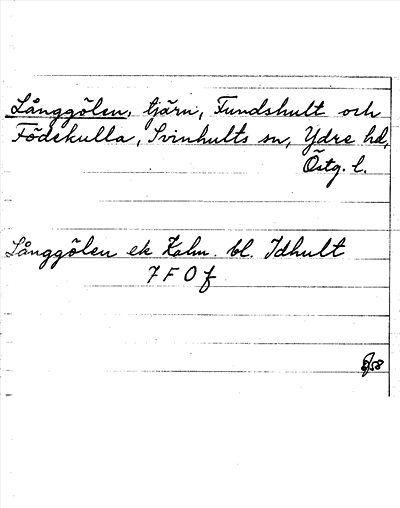 Långgölen, tjärn, Fundshult och
Födekulla, Svinhults sn, Ydre hd,
Östg. l.
Långgölen ek Kalm. bl. Idhult
7 F 0 f